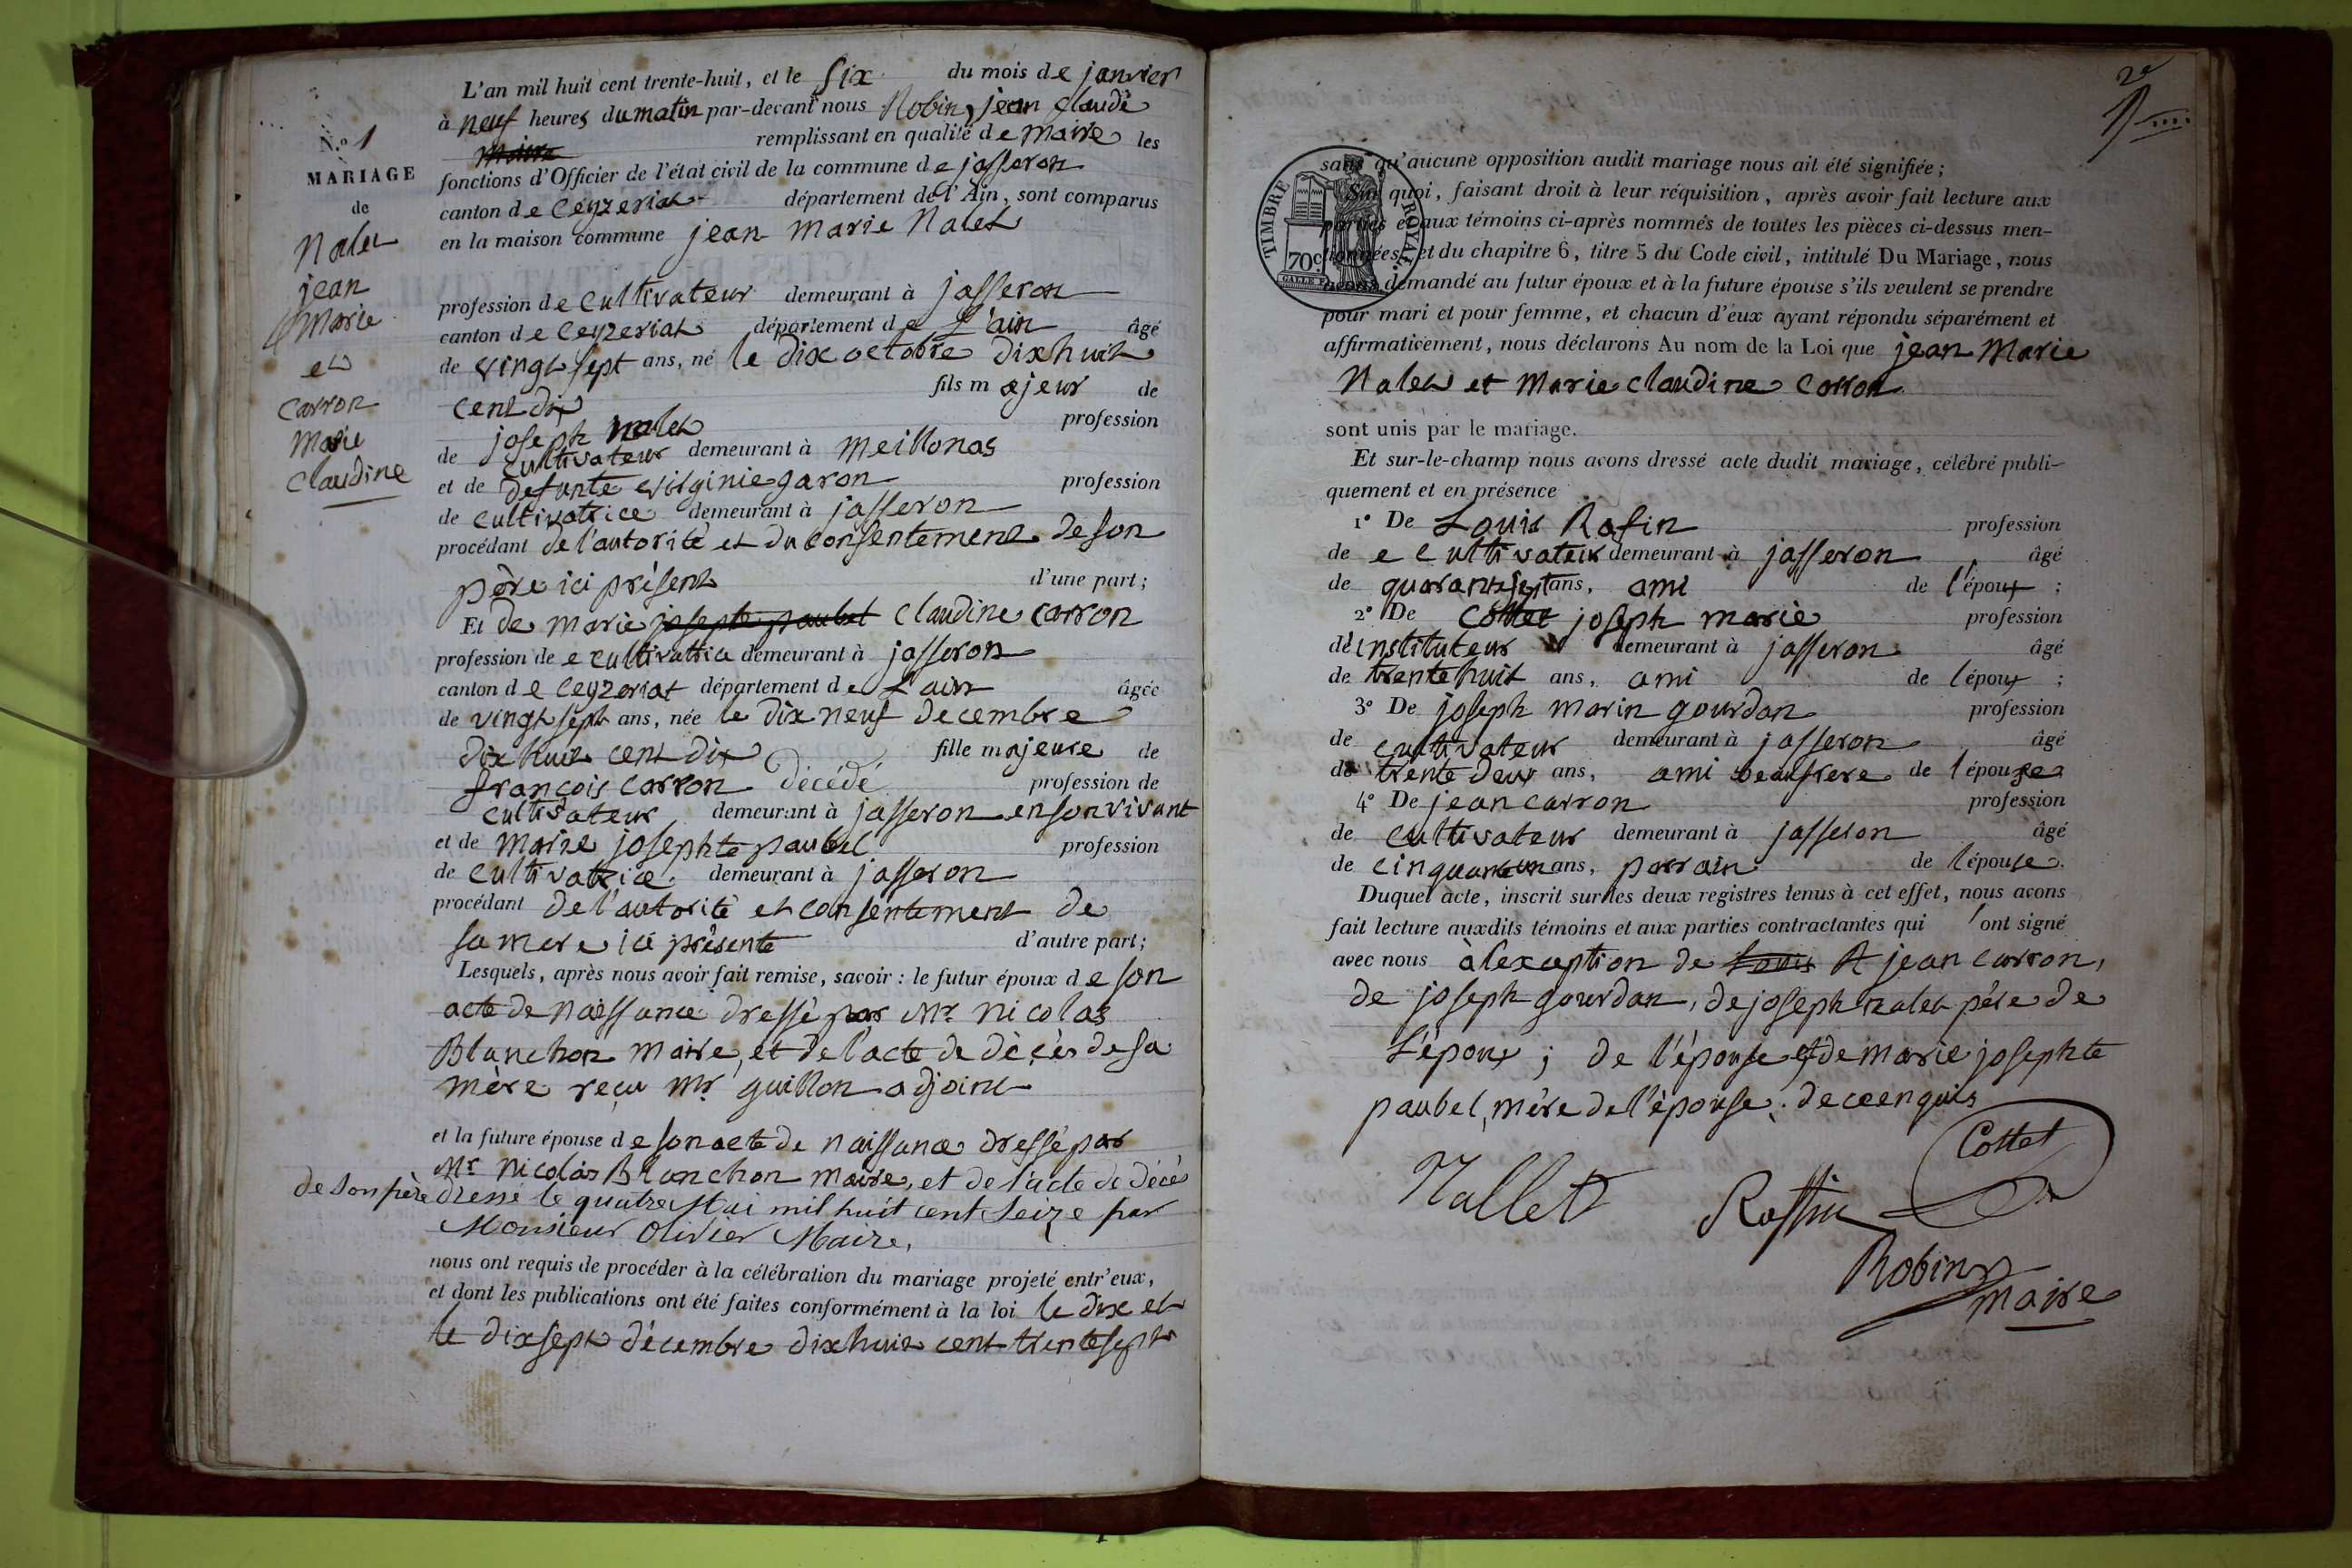 N.º 1
MARIAGE
de
Nalet
jean
Marie
et
Carron
Marie
Claudine
L'an mil huit cent trente-huit, et le six du mois de janvier
à neuf heures du matin par-devant nous Robin, jean Claude
maire remplissant en qualité de maire les
fonctions d'Officier de l'état civil de la commune de jasseron
canton de Ceyzeriat département de l'Ain, sont comparus
en la maison commune jean Marie Nalet
profession de Cultivateur demeurant à jasseron
canton de Ceyzeriat département de L'ain âgé
de vingt sept ans, né le dix octobre dixhuit
cent dix fils majeur de
joseph nalet profession
de cultivateur demeurant à meillonas
et de defunte virginie garon profession
de cultivatrice demeurant à jasseron
procédant de l'autorité et du consentement de son
père ici présent d'une part;
Et de marie josephte paubel Claudine carron
profession de e cultivatrice demeurant à jasseron
canton de Ceyzeriat département de L'ain âgée
de vingt sept ans, née le dix neuf decembre
dix huit cent dix fille majeure de
françois carron décédé profession de
cultivateur demeurant à jasseron en son vivant
et de marie josephte paubel profession
de cultivatrice demeurant à jasseron
procédant de l'autorité et consentement de
sa mere ici présente d'autre part;
Lesquels, après nous avoir fait remise, savoir : le futur époux de son
acte de naissance dressé par Mr. Nicolas
Blanchon maire, et de l'acte de décès de sa
mère reçu Mr guillon adjoint
et la future épouse de son acte de naissance dressé par
Mr Nicolas Blanchon maire, et de l'acte de décè
de son père dressé le quatre Mai mil huit cent seize par
Monsieur Olivier Maire,
nous ont requis de procéder à la célébration du mariage projeté entr'eux,
et dont les publications ont été faites conformément à la loi le dix et
le dix sept décembre dixhuit cent trente sept
2e
TIMBRE ROYAL
70c
sans qu'aucune opposition audit mariage nous ait été signifiée;
Sur quoi, faisant droit à leur réquisition, après avoir fait lecture aux
parties et aux témoins ci-après nommés de toutes les pièces ci-dessus men-
tionnées, et du chapitre 6, titre 5 du Code civil, intitulé Du Mariage, nous
avons demandé au futur époux et à la future épouse s'ils veulent se prendre
pour mari et pour femme, et chacun d'eux ayant répondu séparément et
affirmativement, nous déclarons Au nom de la Loi que jean Marie
Nalet et Marie claudine Carron
sont unis par le mariage.
Et sur-le-champ nous avons dressé acte dudit mariage, célébré publi-
quement et en présence
1º De Louis Rafin profession
de e cultivateur demeurant à jasseron âgé
de quarante sept ans, ami de l'époux ;
2º De Cottet joseph marie profession
d'instituteur demeurant à jasseron âgé
de trente huit ans, ami de l'époux ;
3º De joseph marin gourdan profession
de cultivateur demeurant à jasseron âgé
de trente deux ans, ami beaufrere de l'épouse
4º De jean carron profession
de cultivateur demeurant à jasseron âgé
de cinquante un ans, parrain de l'épouse.
Duquel acte, inscrit sur les deux registres tenus à cet effet, nous avons
fait lecture auxdits témoins et aux parties contractantes qui l'ont signé
avec nous à l'exception de Louis jean Carron,
de joseph gourdan, de joseph nalet père de
L'époux ; de l'épouse et de marie josephte
paubel, mère de l'épouse. de ce enquis
Nallet Raffin Cottet
Robin
maire